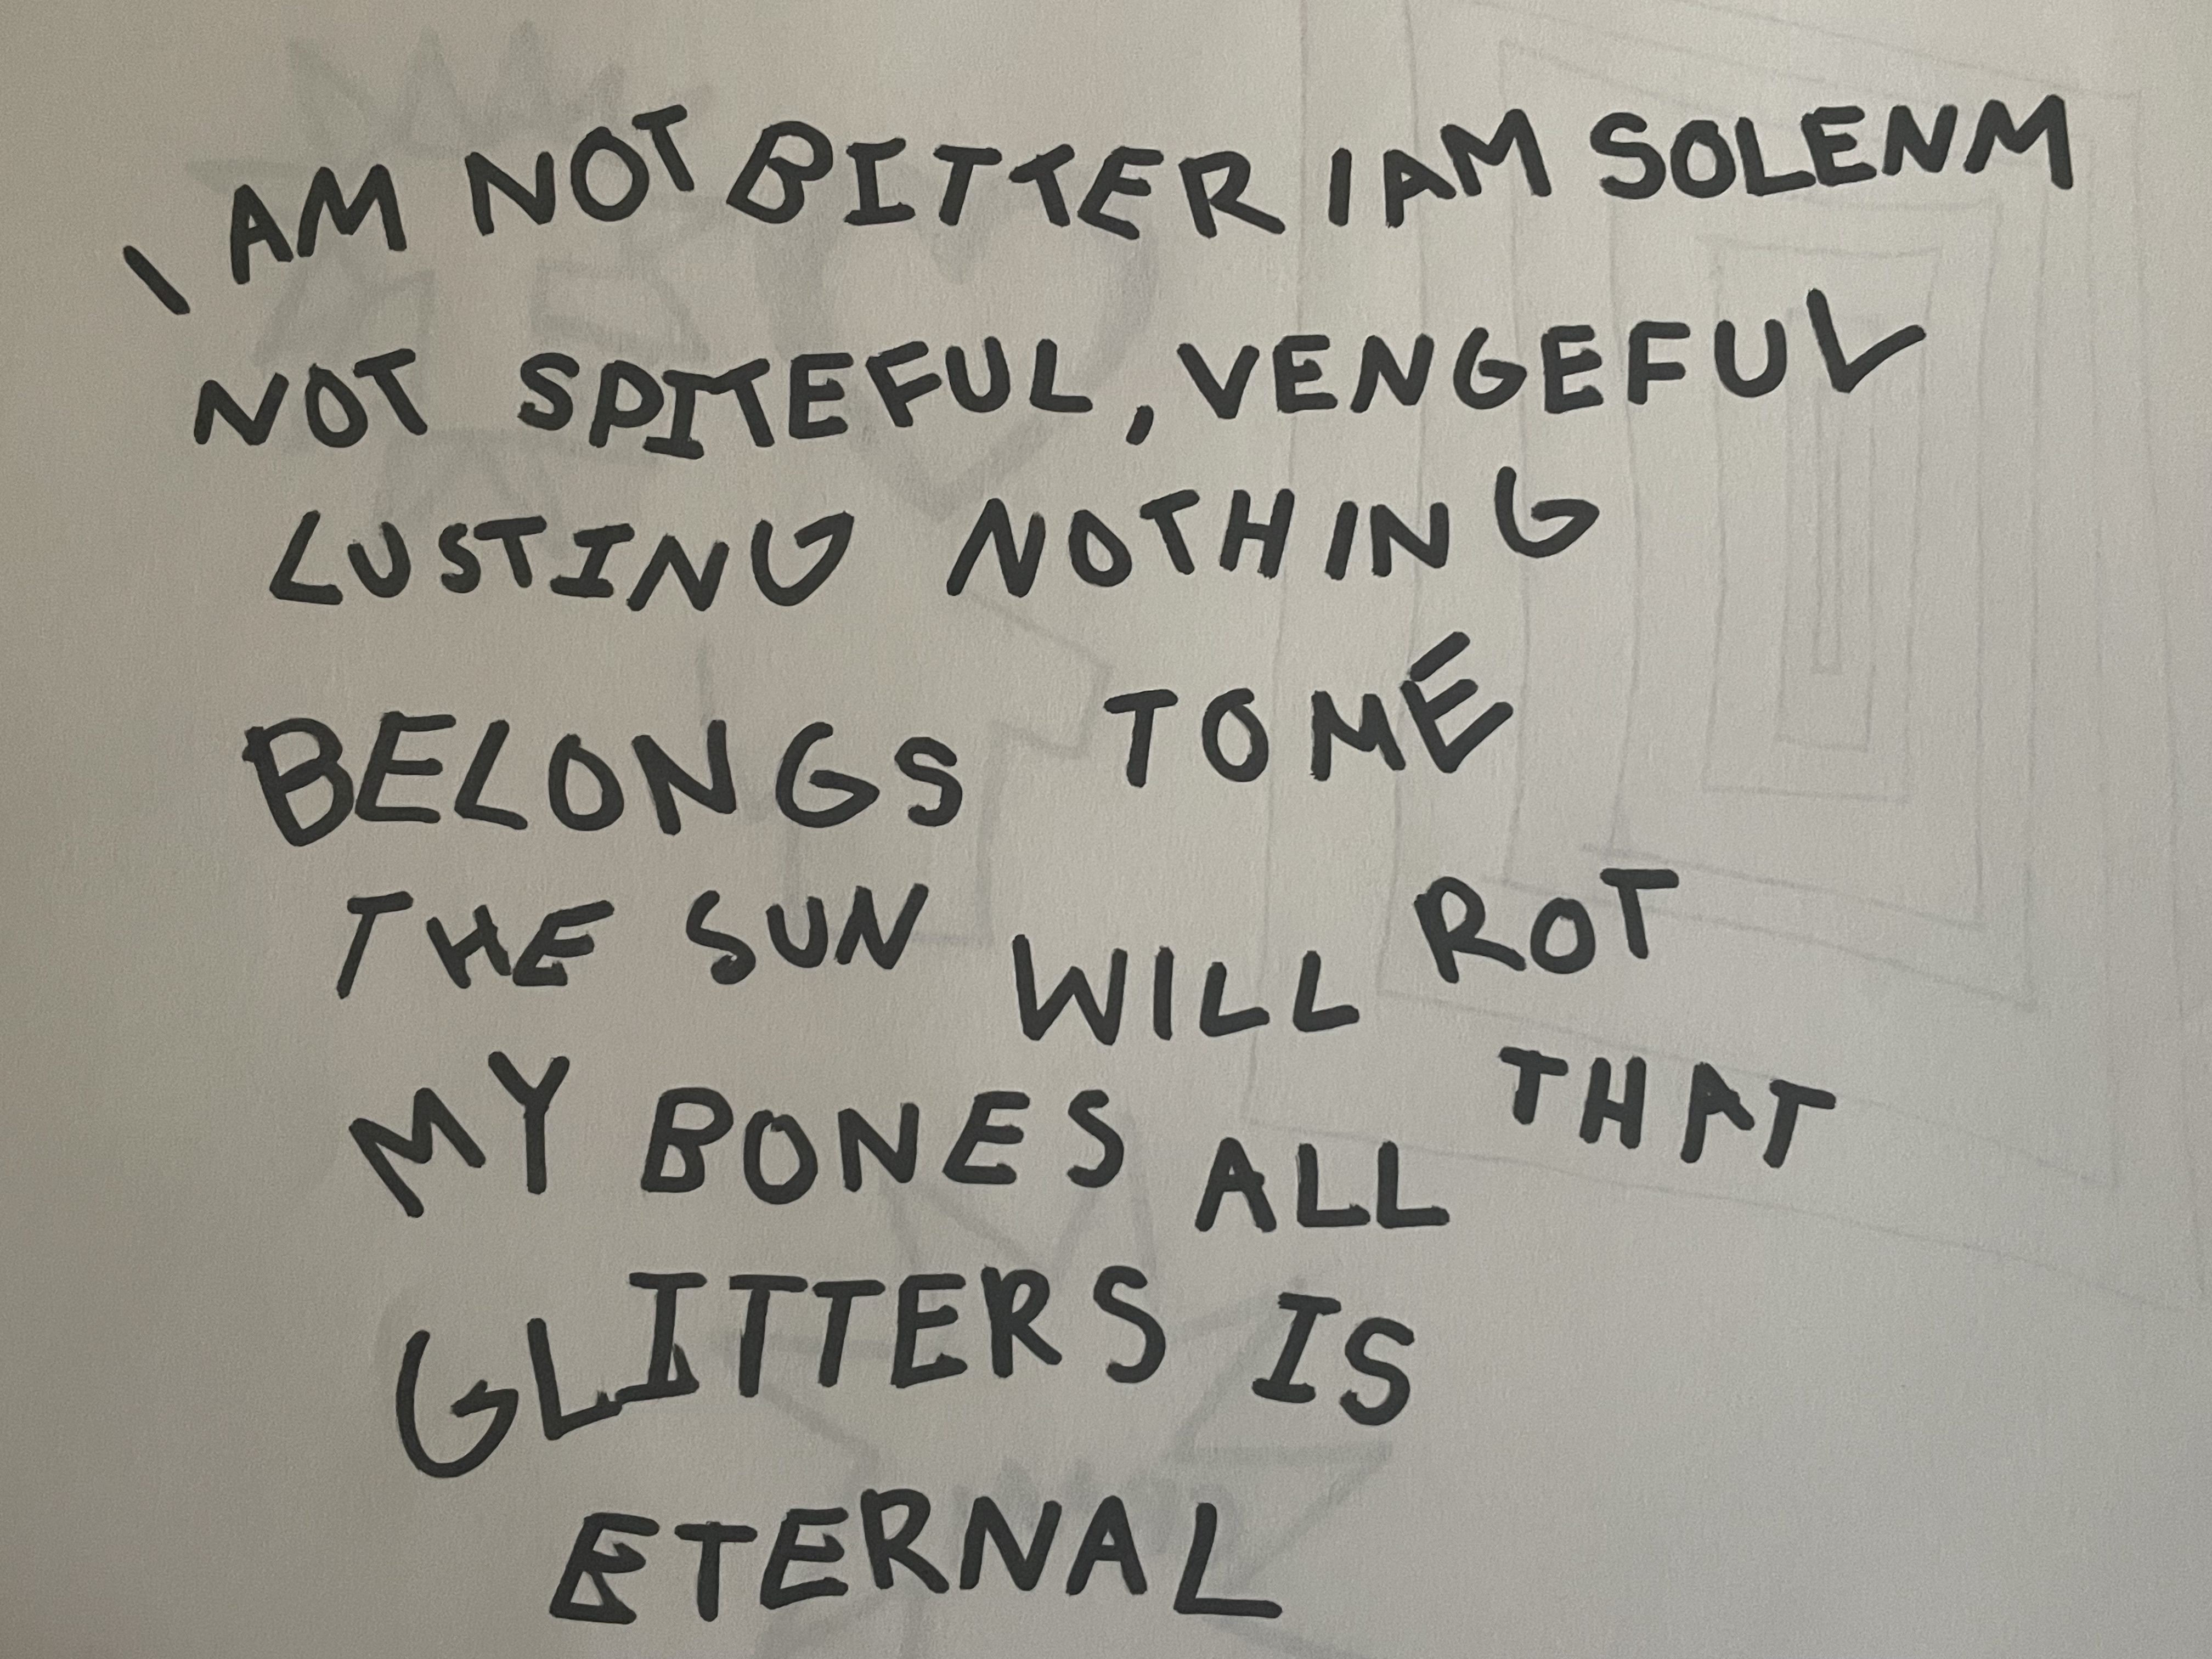 I AM NOT BITTER I AM SOLENM
NOT SPITEFUL, VENGEFUL
LUSTING NOTHING
BELONGS TO ME
THE SUN WILL ROT
MY BONES ALL THAT
GLITTERS IS
ETERNAL